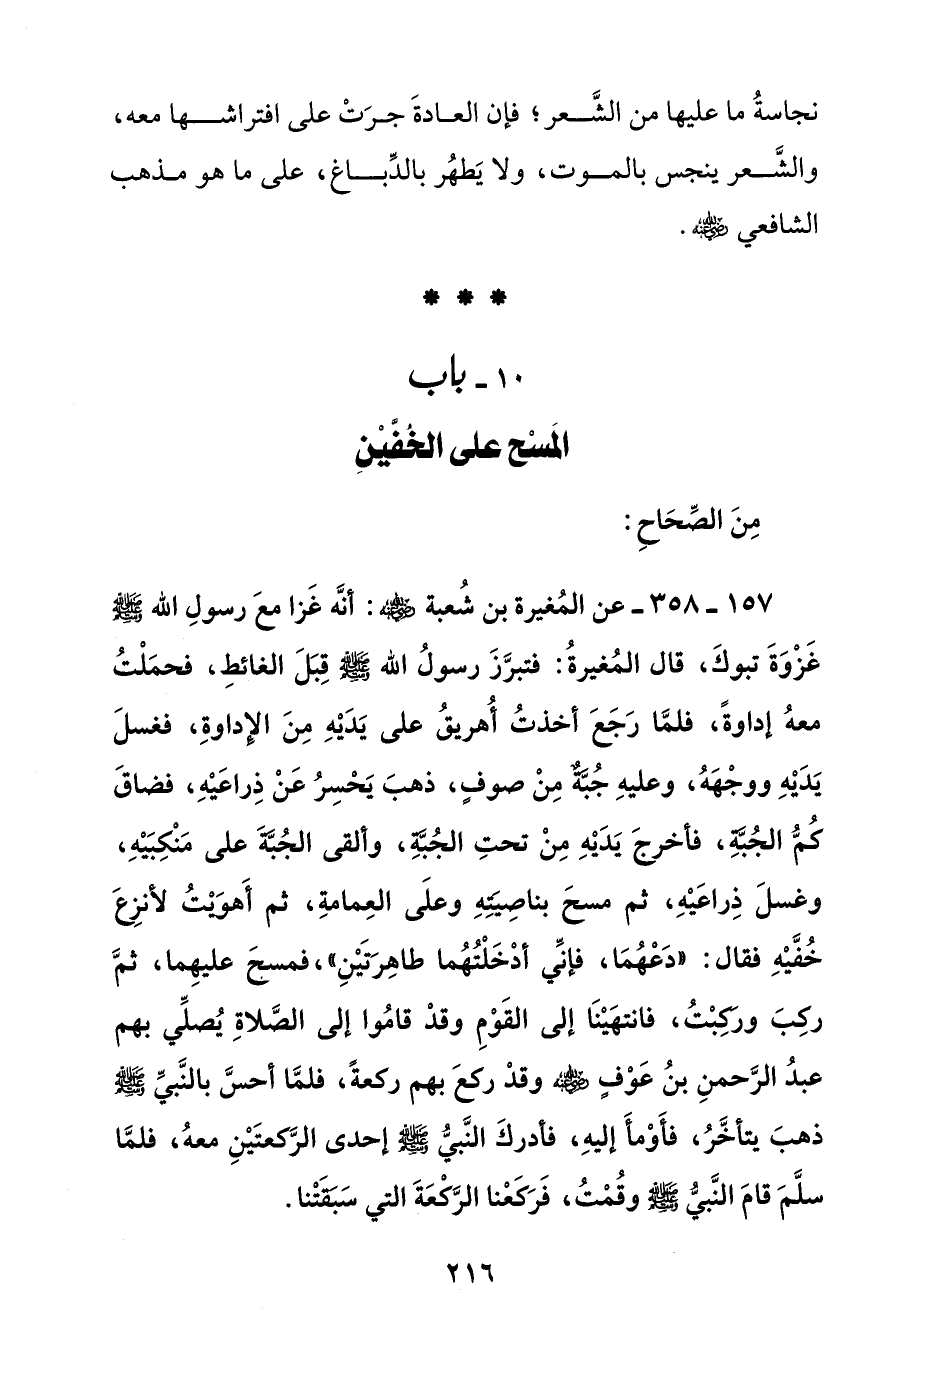 نجاسةُ ما عليها من الشَّعر؛ فإن العادةَ جرَتْ على افتراشها معه،
والشَّعر ينجس بالموت، ولا يَطهُر بالدِّباغ، على ما هو مذهب
الشافعي رضي الله عنه .
* * *
١٠ - باب
المَسْح على الخُفَّيْنِ
مِنَ الصِّحَاحِ :
١٥٧ - ٣٥٨ - عن المُغيرة بن شُعبة رضي الله عنه : أنَّه غَزا معَ رسولِ الله ﷺ
غَزْوَةَ تبوكَ، قال المُغيرةُ: فتبرَّزَ رسولُ الله ﷺ قِبَلَ الغائطِ، فحمَلْتُ
معهُ إداوةً، فلمَّا رَجَعَ أخذتُ أُهريقُ على يَدَيْهِ مِنَ الإداوةِ، فغسلَ
يَدَيْهِ ووجْهَهُ، وعليهِ جُبَّةٌ مِنْ صوفٍ، ذهبَ يَحْسِرُ عَنْ ذِراعَيْهِ، فضاقَ
كُمُّ الجُبَّةِ، فأخرجَ يَدَيْهِ مِنْ تحتِ الجُبَّةِ، وألقى الجُبَّةَ على مَنْكِبَيْهِ،
وغسلَ ذِراعَيْهِ، ثم مسحَ بناصِيَتِهِ وعلَى العِمامةِ، ثم أَهوَيْتُ لأنزِعَ
خُفَّيْهِ فقال: «دَعْهُمَا، فإنِّي أدْخَلْتُهُما طاهِرَتَيْنِ»،فمسحَ عليهِما، ثمَّ
ركِبَ وركِبْتُ، فانتهَيْنَا إلى القَوْمِ وقدْ قامُوا إلى الصَّلاةِ يُصلِّي بهم
عبدُ الرَّحمنِ بنُ عَوْفٍ رضي الله عنه وقدْ ركعَ بهم ركعةً، فلمَّا أحسَّ بالنَّبيِّ ﷺ
ذهبَ يتأخَّرُ، فأَوْمأَ إليهِ، فأدركَ النَّبيُّ ﷺ إحدى الرَّكعتَيْنِ معهُ، فلمَّا
سلَّمَ قامَ النَّبيُّ ﷺ وقُمْتُ، فَرَكَعْنا الرَّكْعَةَ التي سَبَقَتْنا.
٢١٦